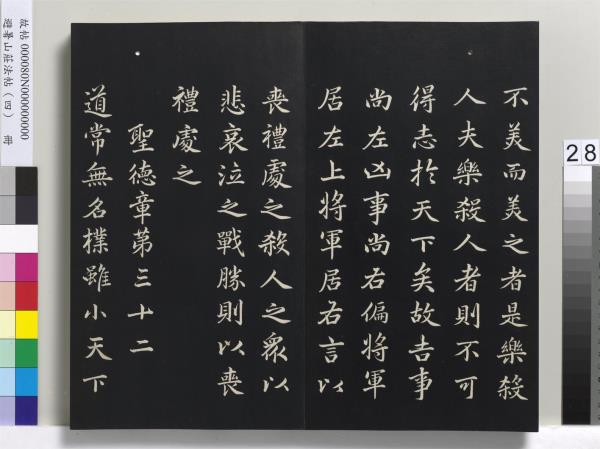 不美而美之者是樂殺
人夫樂殺人者則不可
得志於天下矣故吉事
尚左凶事尚右偏將軍
居左上將軍居右言以
喪禮處之殺人之眾以
悲哀泣之戰勝則以喪
禮處之
聖德章第三十二
道常無名樸雖小天下
故帖 000080N000000000
避暑山莊法帖（四） 冊
28